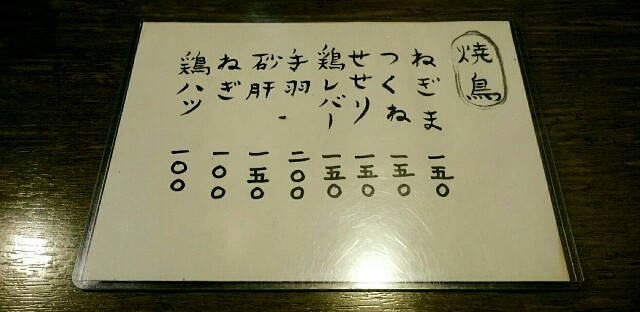 焼鳥
ねぎま 一五〇
つくね 一五〇
せせり 一五〇
鶏レバー 一五〇
手羽 二〇〇
砂肝 一五〇
ねぎ 一〇〇
鶏ハツ 一〇〇